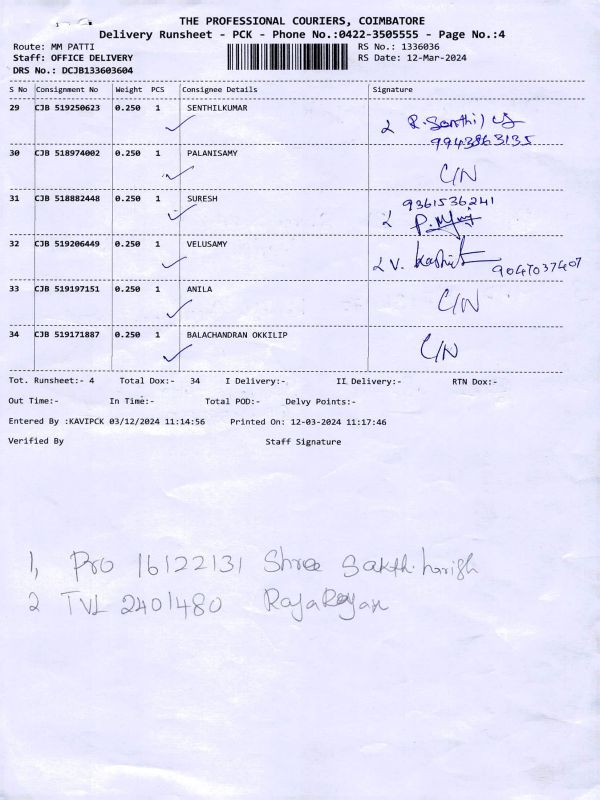 THE PROFESSIONAL COURIERS, COIMBATORE
Delivery Runsheet - PCK - Phone No.:0422-3505555 - Page No.:4
Route: MM PATTI RS No.: 1336036
Staff: OFFICE DELIVERY RS Date: 12-Mar-2024
DRS No.: DCJB133603604
S No Consignment No Weight PCS Consignee Details Signature
29 CJB 519250623 0.250 1 SENTHILKUMAR
9943863135
30 CJB 518974002 0.250 1 PALANISAMY
C/N
31 CJB 518882448 0.250 1 SURESH 9361536241
32 CJB 519206449 0.250 1 VELUSAMY
9047037407
33 CJB 519197151 0.250 1 ANILA C/N
34 CJB 519171887 0.250 1 BALACHANDRAN OKKILIP
C/N
Tot. Runsheet:- 4 Total Dox:- 34 I Delivery:- II Delivery:- RTN Dox:-
Out Time:- In Time:- Total POD:- Delvy Points:-
Entered By :KAVIPCK 03/12/2024 11:14:56 Printed On: 12-03-2024 11:17:46
Verified By Staff Signature
1, Pro 16122131 Shree Sakthi harish
2 TVL 2401480